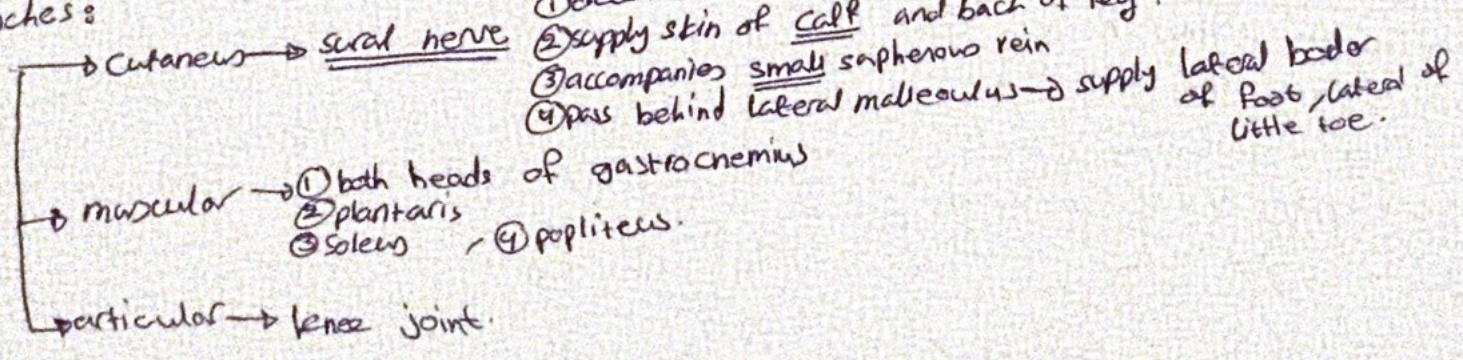 ches:
①
Cutaneus → sural nerve ②supply skin of calf and back of leg.
③accompanies small saphenous vein
④pass behind lateral malleoulus→ supply lateral boder
of foot, lateral of
little toe.
muscular → ①both heads of gastrocnemius
②plantaris
③Soleus , ④popliteus.
articular → knee joint.